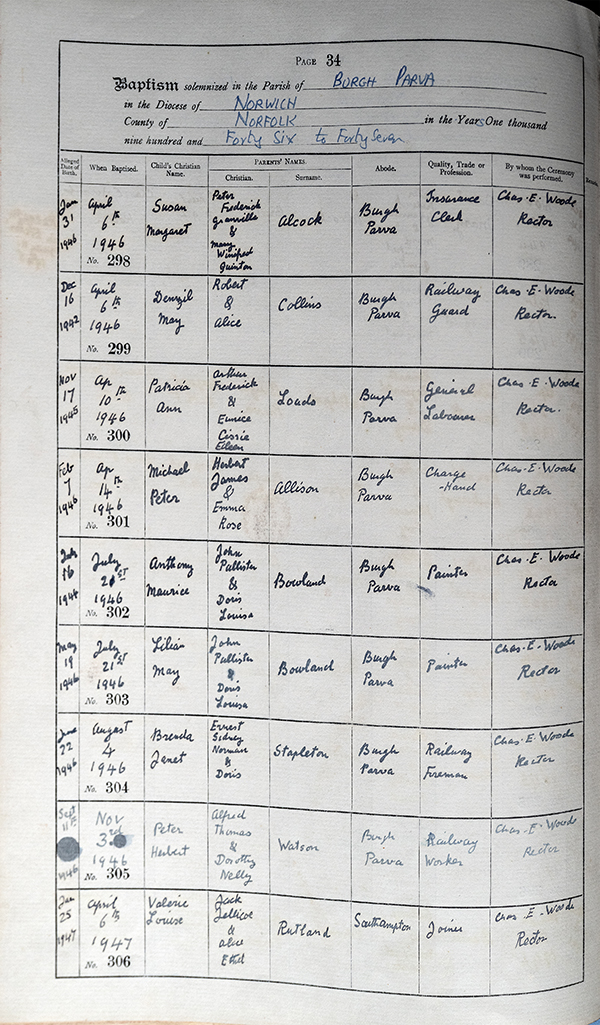 PAGE 34
Baptism solemnized in the Parish of BURGH PARVA
in the Diocese of NORWICH
County of NORFOLK in the Years One thousand
nine hundred and Forty Six to Forty Seven
Alleged Date of Birth.
When Baptised.
Child's Christian Name.
PARENTS' NAMES.
Christian.
Surname.
Abode.
Quality, Trade or Profession.
By whom the Ceremony was performed.
Jan 31 1946
April 6th 1946
No. 298
Susan Margaret
Peter Frederick Granville & Mary Winifred Quinton
Alcock
Burgh Parva
Insurance Clerk
Chas. E. Woode Rector
Dec 16 1942
April 6th 1946
No. 299
Denzil May
Robert & Alice
Collins
Burgh Parva
Railway Guard
Chas. E. Woode Rector.
Nov 17 1945
Ap 10th 1946
No. 300
Patricia Ann
Arthur Frederick & Eunice Cissie Eileen
Loads
Burgh Parva
General Labourer
Chas. E. Woode Rector.
Feb 7 1946
Ap 14th 1946
No. 301
Michael Peter
Herbert James & Emma Rose
Allison
Burgh Parva
Charge-Hand
Chas. E. Woode Rector
16 1944
July 21st 1946
No. 302
Anthony Maurice
John Pallister & Doris Louisa
Bowland
Burgh Parva
Painter
Chas. E. Woode Rector
May 19 1946
July 21st 1946
No. 303
Lilian May
John Pallister & Doris Louisa
Bowland
Burgh Parva
Painter
Chas. E. Woode Rector
June 22 1946
August 4 1946
No. 304
Brenda Janet
Ernest Sidney Norman & Doris
Stapleton
Burgh Parva
Railway Fireman
Chas. E. Woode Rector
Sept 11th 1946
Nov 3rd 1946
No. 305
Peter Herbert
Alfred Thomas & Dorothy Nelly
Watson
Burgh Parva
Railway Worker
Chas. E. Woode Rector
Jan 25 1947
April 6th 1947
No. 306
Valerie Louise
Jack Jellicoe & Alice Ethel
Rutland
Southampton
Joiner
Chas. E. Woode Rector